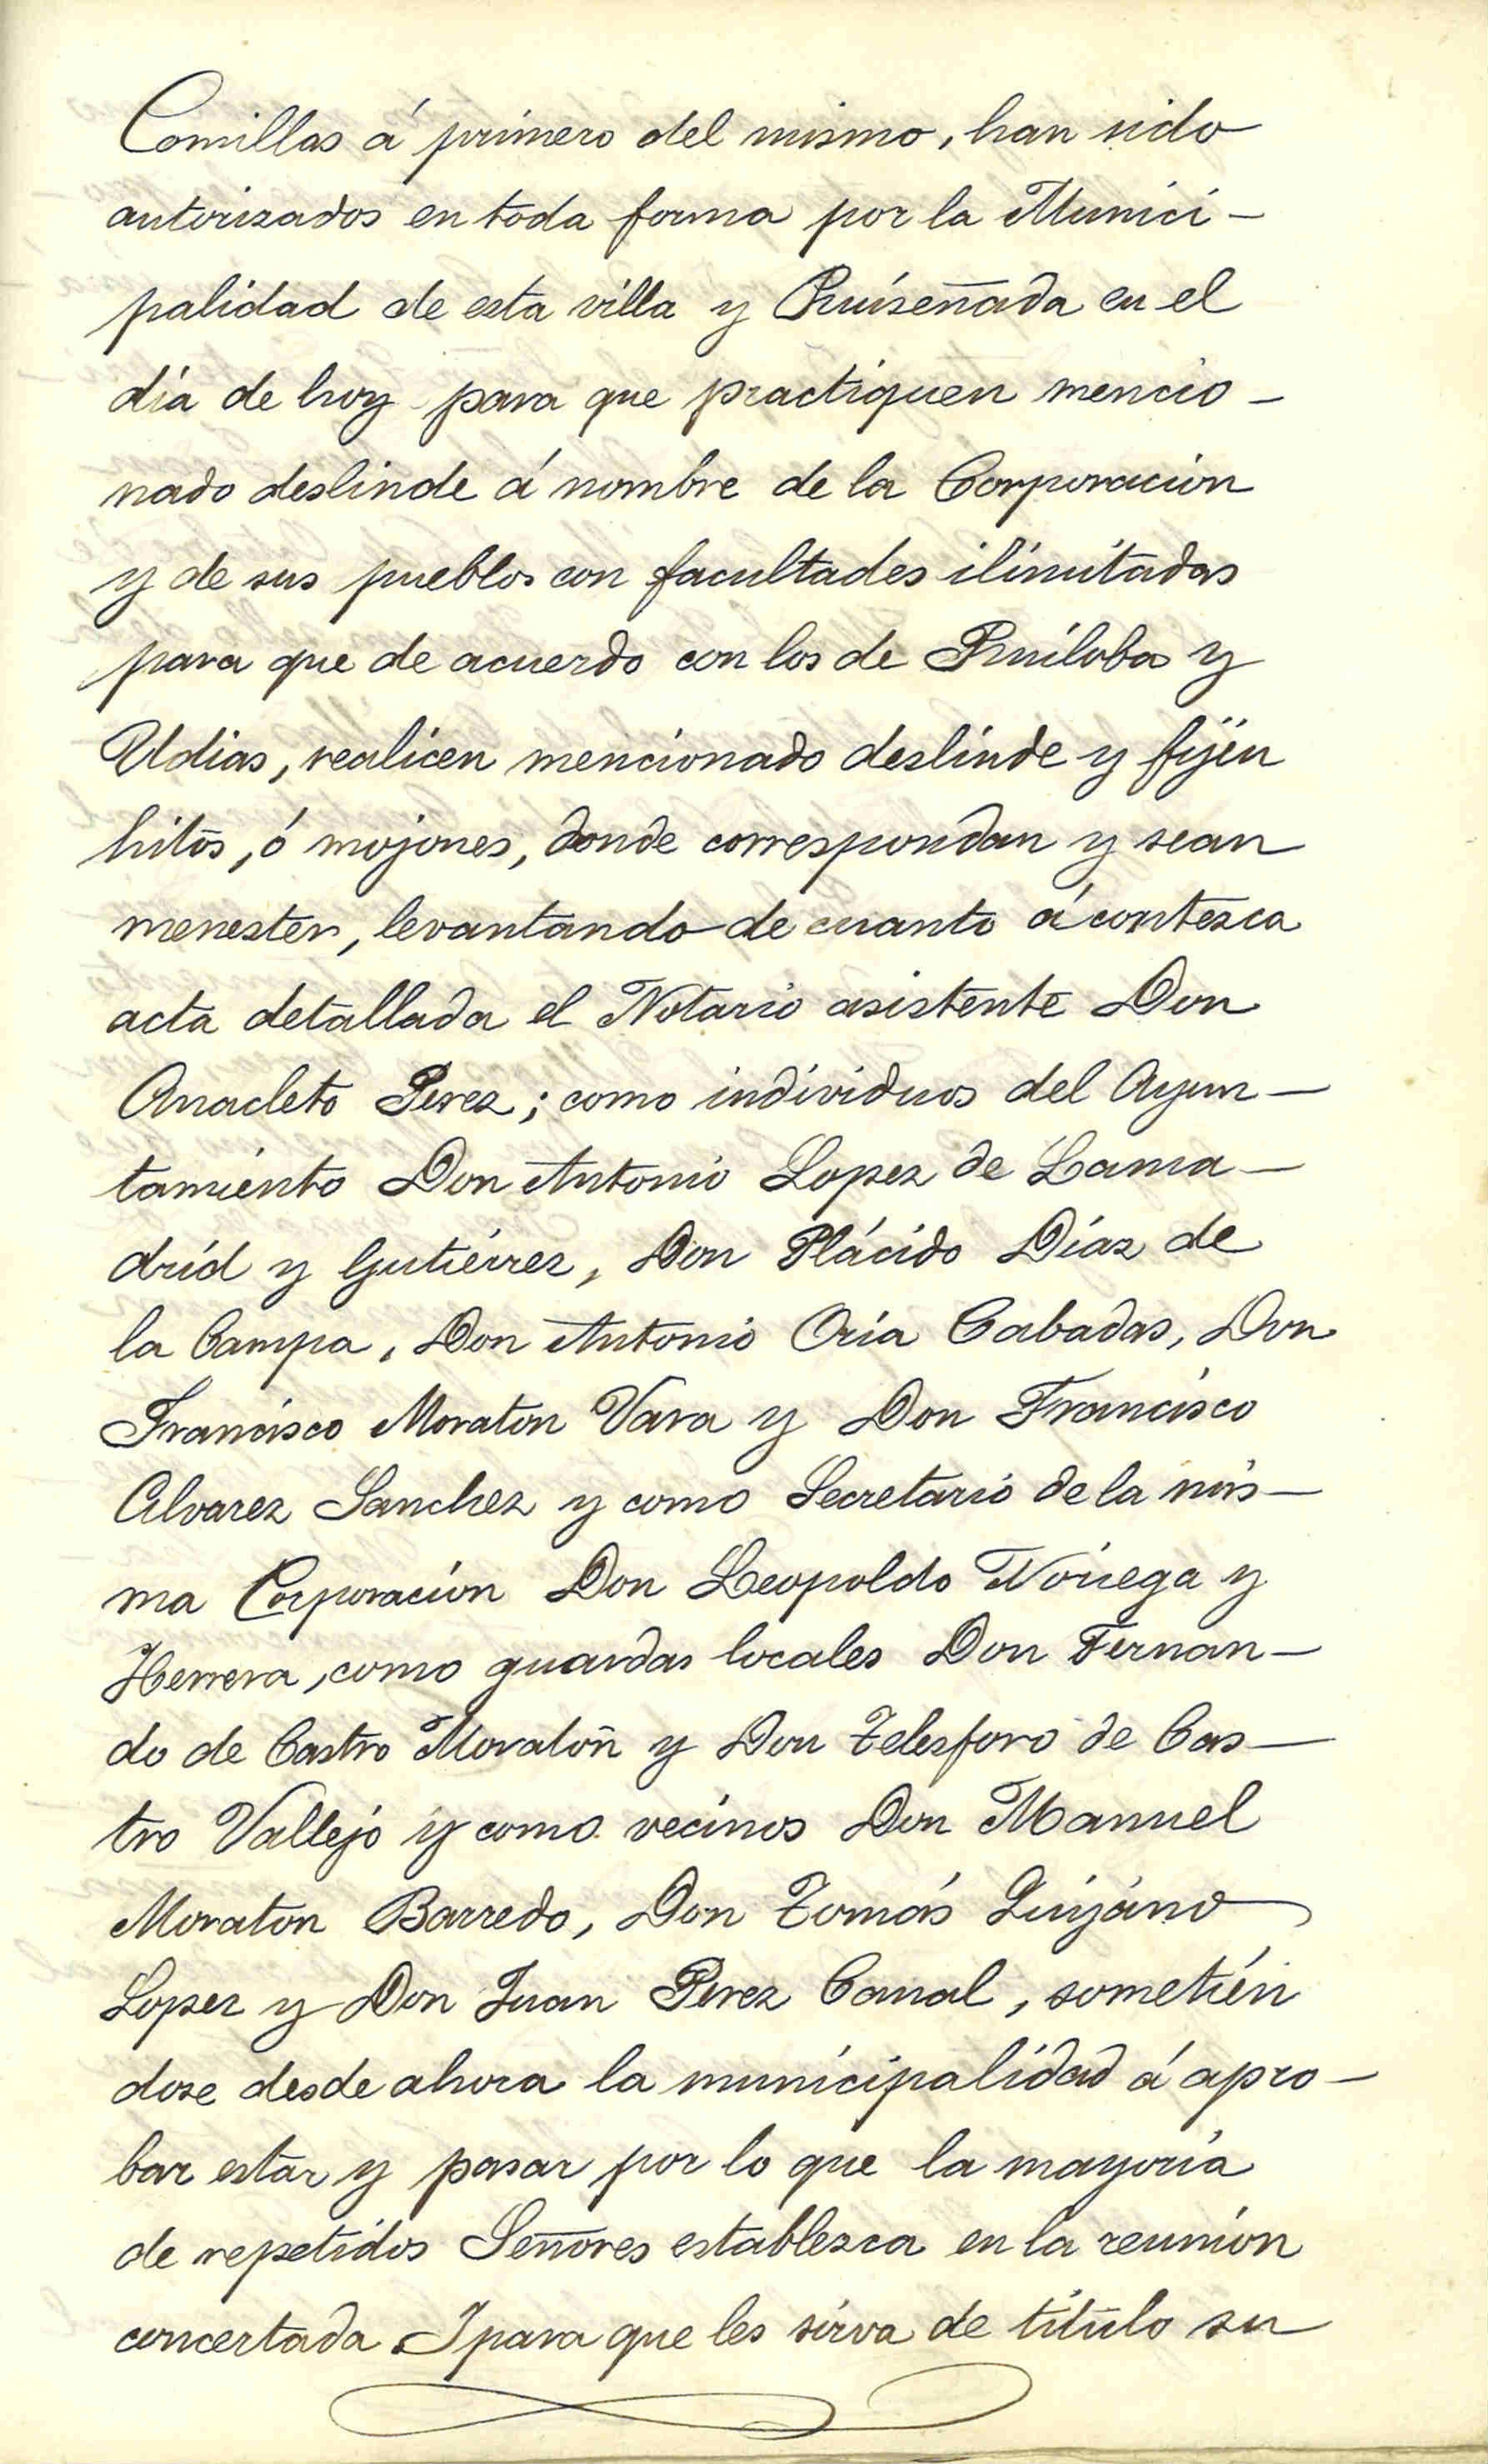 Comillas á primero del mismo, han sido
autorizados en toda forma por la Munici-
palidad de esta villa y Ruiseñada en el
día de hoy para que practiquen mencio-
nado deslinde á nombre de la Corporacion
y de sus pueblos con facultades ilimitadas
para que de acuerdo con los de Ruiloba y
Udias, realicen mencionado deslinde y fijen
hitos, ó mojones, donde correspondan y sean
menester, levantando de cuanto ácontesca
acta detallada el Notario asistente Don
Anacleto Perez; como individuos del Ayun-
tamiento Don Antonio Lopez de Lama-
drid y Gutiérrez, Don Plácido Díaz de
la Campa, Don Antonio Oria Cabadas, Don
Francisco Moraton Vara y Don Francisco
Alvarez Sanchez y como Secretario de la mis-
ma Corporacion Don Leopoldo Noriega y
Herrera, como guardas locales Don Fernan-
do de Castro Moratón y Don Telesforo de Cas-
tro Vallejo y como vecinos Don Manuel
Moraton Barredo, Don Tomás Quijano
Lopez y Don Juan Perez Canal, sometién
dose desde ahora la municipalidad á apro-
bar estar y pasar por lo que la mayoria
de repetidos Señores establezca en la reunion
concertada. I para que les sirva de titulo su